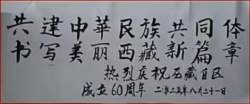 共建中华民族共同体
书写美丽西藏新篇章
热烈庆祝西藏自治区
成立60周年 二〇二五年八月二十一日